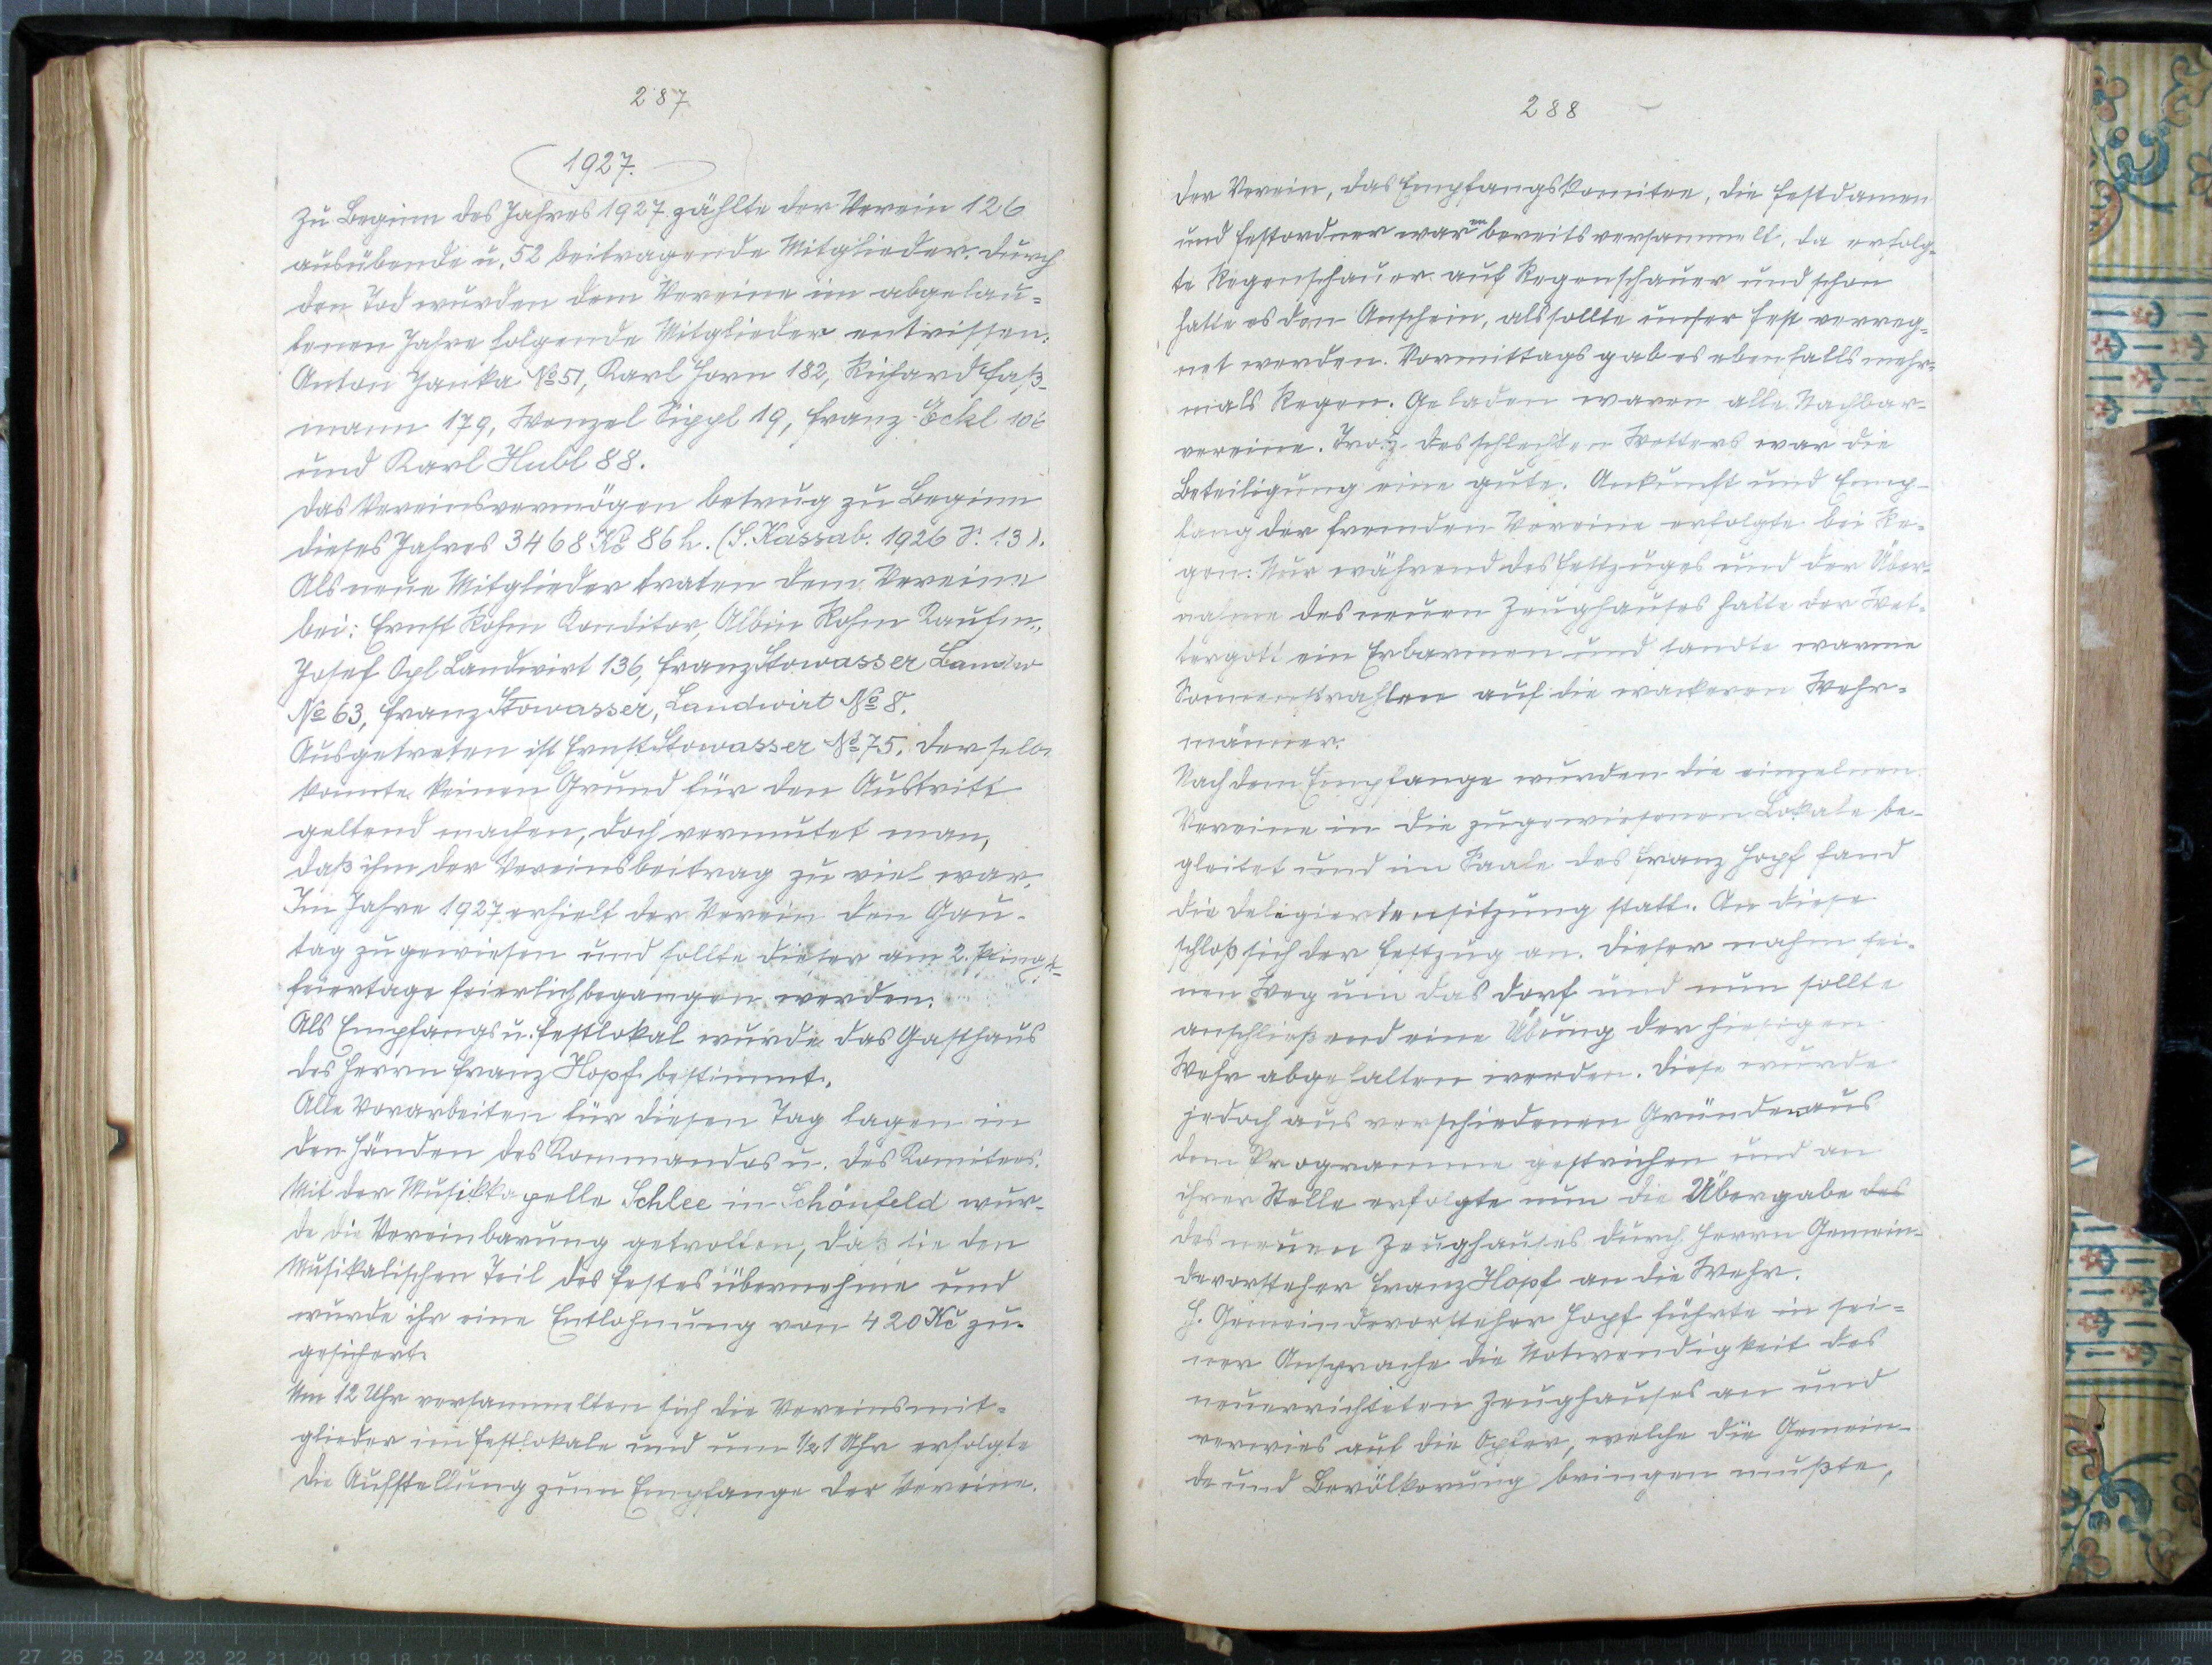 287
1927.
Zu Beginn des Jahres 1927 zählte der Verein 126
ausübende u. 52 beitragende Mitglieder. Durch
den Tod wurden dem Vereine im abgelau-
fenen Jahre folgende Mitglieder entrissen:
Anton Janka No 51, Karl Horn 182, Richard Faß-
mann 179, Wenzel Sippl 19, Franz Eckl 106
und Karl Hubl 88.
Das Vereinsvermögen betrug zu Beginn
dieses Jahres 3468 Kč 86 h. (S. Kassab. 1926 S. 13).
Als neue Mitglieder traten dem Vereine
bei: Ernst Rohm Konditor, Albin Rohm Kaufm.,
Josef Opl Landwirt 136, Franz Stowasser Landw
No 63, Franz Stowasser, Landwirt No 8.
Ausgetreten ist Ernst Stowasser No 75. Derselbe
konnte keinen Grund für den Austritt
geltend machen, doch vermutet man,
daß ihm der Vereinsbeitrag zu viel war.
Im Jahre 1927 erhielt der Verein den Gau-
tag zugewiesen und sollte dieser am 2. Pfingst-
feiertage feierlich begangen werden.
Als Empfangs u. Festlokal wurde das Gasthaus
des Herrn Franz Hopf bestimmt.
Alle Vorarbeiten für diesen Tag lagen in
den Händen des Kommandos u. des Komitees.
Mit der Musikkapelle Schlee in Schönfeld wur-
de die Vereinbarung getroffen, daß sie den
Musikalischen Teil des Festes übernehme und
wurde ihr eine Entlohnung von 420 Kč zu-
gesichert.
Um 12 Uhr versammelten sich die Vereinsmit-
glieder im Festlokale und um 1/2 1 Uhr erfolgte
die Aufstellung zum Empfange der Vereine.
288
Der Verein, das Empfangskomitee, die Festdamen
und Festordner waren bereits versammelt, da erfolg-
te Regenschauer auf Regenschauer und schon
hatte es den Anschein, als sollte unser Fest verreg-
net werden. Vormittags gab es ebenfalls mehr-
mals Regen. Geladen waren alle Nachbar-
vereine. Trotz des schlechten Wetters war die
Beteiligung eine gute. Ankunft und Emp-
fang der fremden Vereine erfolgte bei Re-
gen. Nur während des Festzuges und der Über-
nahme des neuen Zeughauses hatte der Wet-
tergott ein Erbarmen und sandte warme
Sonnenstrahlen auf die wackeren Wehr-
männer.
Nach dem Empfange wurden die einzelnen
Vereine in die zugewiesenen Lokale be-
gleitet und im Saale des Franz Hopf fand
die Deligiertensitzung statt. An diese
schloß sich der Festzug an. Dieser nahm sei-
nen Weg um das Dorf und nun sollte
anschließend eine Übung der hiesigen
Wehr abgehalten werden. Diese wurde
jedoch aus verschiedenen Gründen aus
dem Programme gestrichen und an
ihrer Stelle erfolgte nun die Übergabe des
des neuen Zeughauses durch Herrn Gemein-
devorsteher Franz Hopf an die Wehr.
H. Gemeindevorsteher Hopf führte in sei-
ner Ansprache die Notwendigkeit des
neuerrichteten Zeughauses an und
verwies auf die Opfer, welche die Gemein-
de und Bevölkerung bringen mußte,